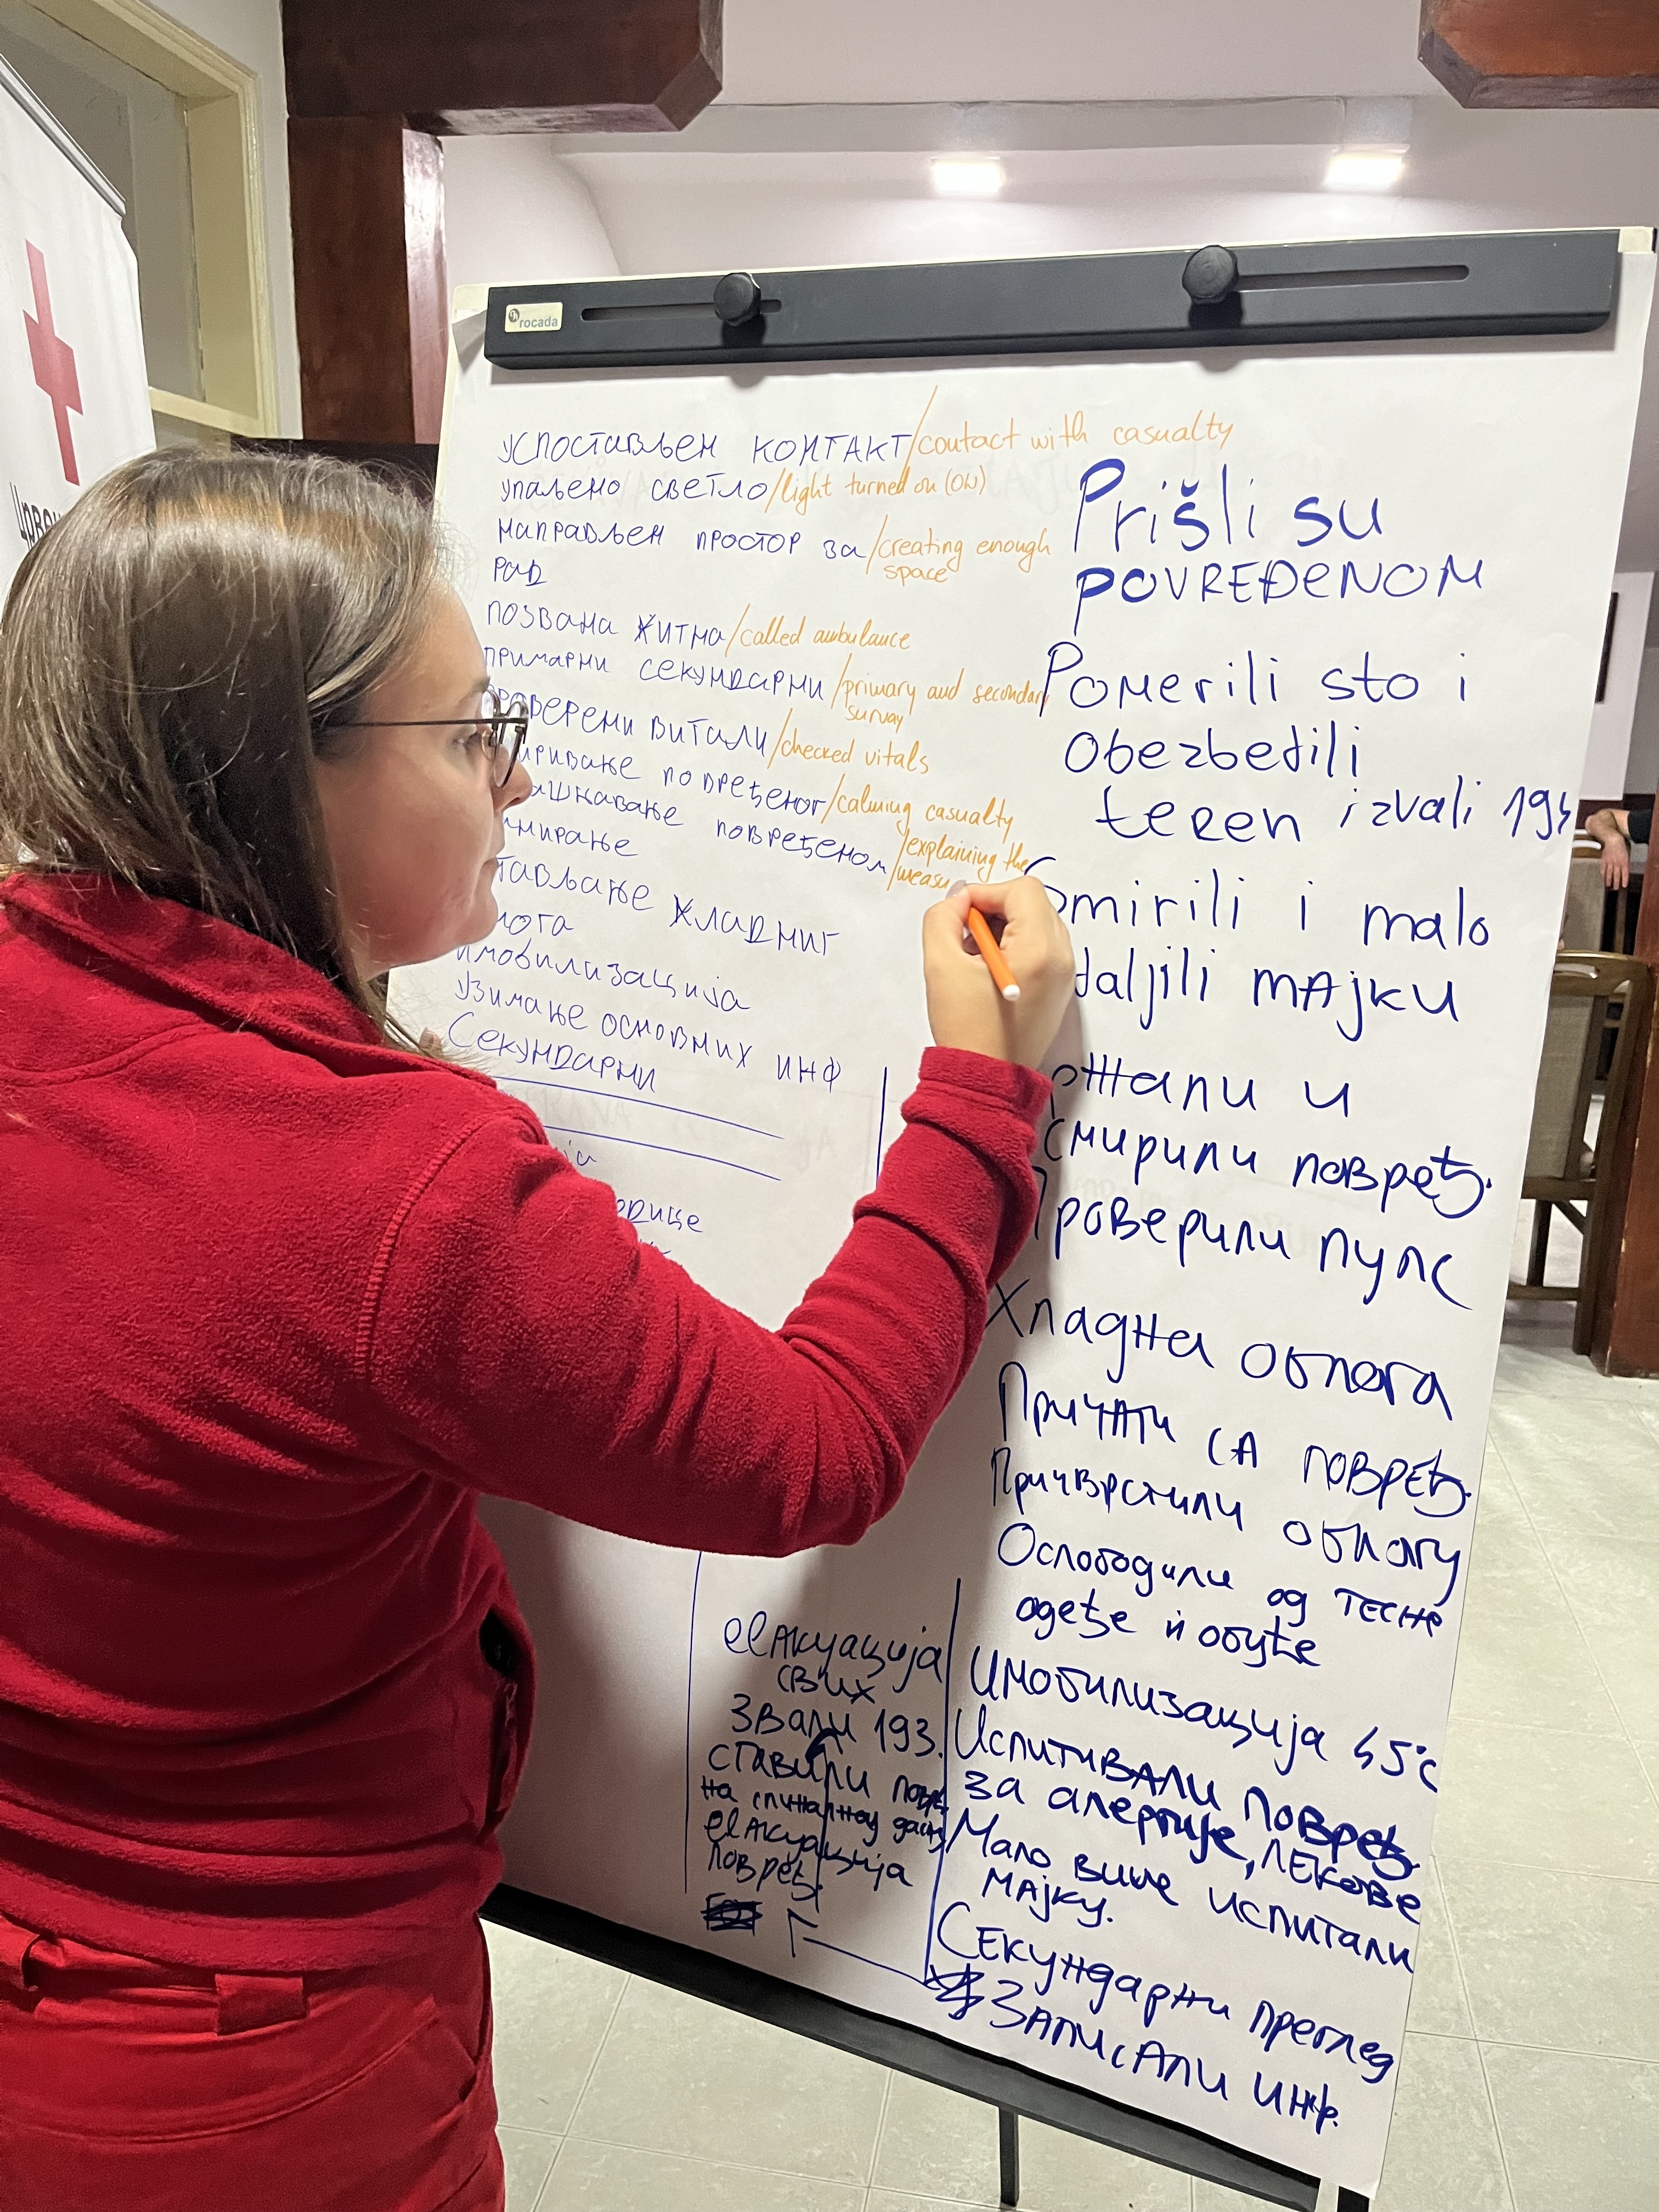 rocada
Црвен
успостављен контакт/contact with casualty
упаљено светло/light turned on (ON)
направљен простор за/creating enough
рад space
позвана хитна/called ambulance
примарни секундарни/primary and secondary
survay
проверени витали/checked vitals
повређеног/calming casualty
повређеном/explaining the
хладниг
имобилизација
узимање основних инф
Секундарни
Prišli su
POVREĐENOM
Pomerili sto i
Obezbedili
teren izvali 194
Smirili i malo
MAJKU
смирили повређ.
Проверили пулс
Хладна облога
Причати СА ПОВРЕЂ.
Причврстили облогу
Ослободили од ТЕСНЕ
одеће и обуће
Имобилизација 45°C
Испитивали повређ.
за алергије, ЛЕКОВЕ
Мало више испитали
МАЈКУ.
СЕКУНДАРНИ преглед
ЗАПИСАЛИ инф.
евакуација
свих
Звали 193.
ставили повре.
на спиналној даск
евакуација
повређ.